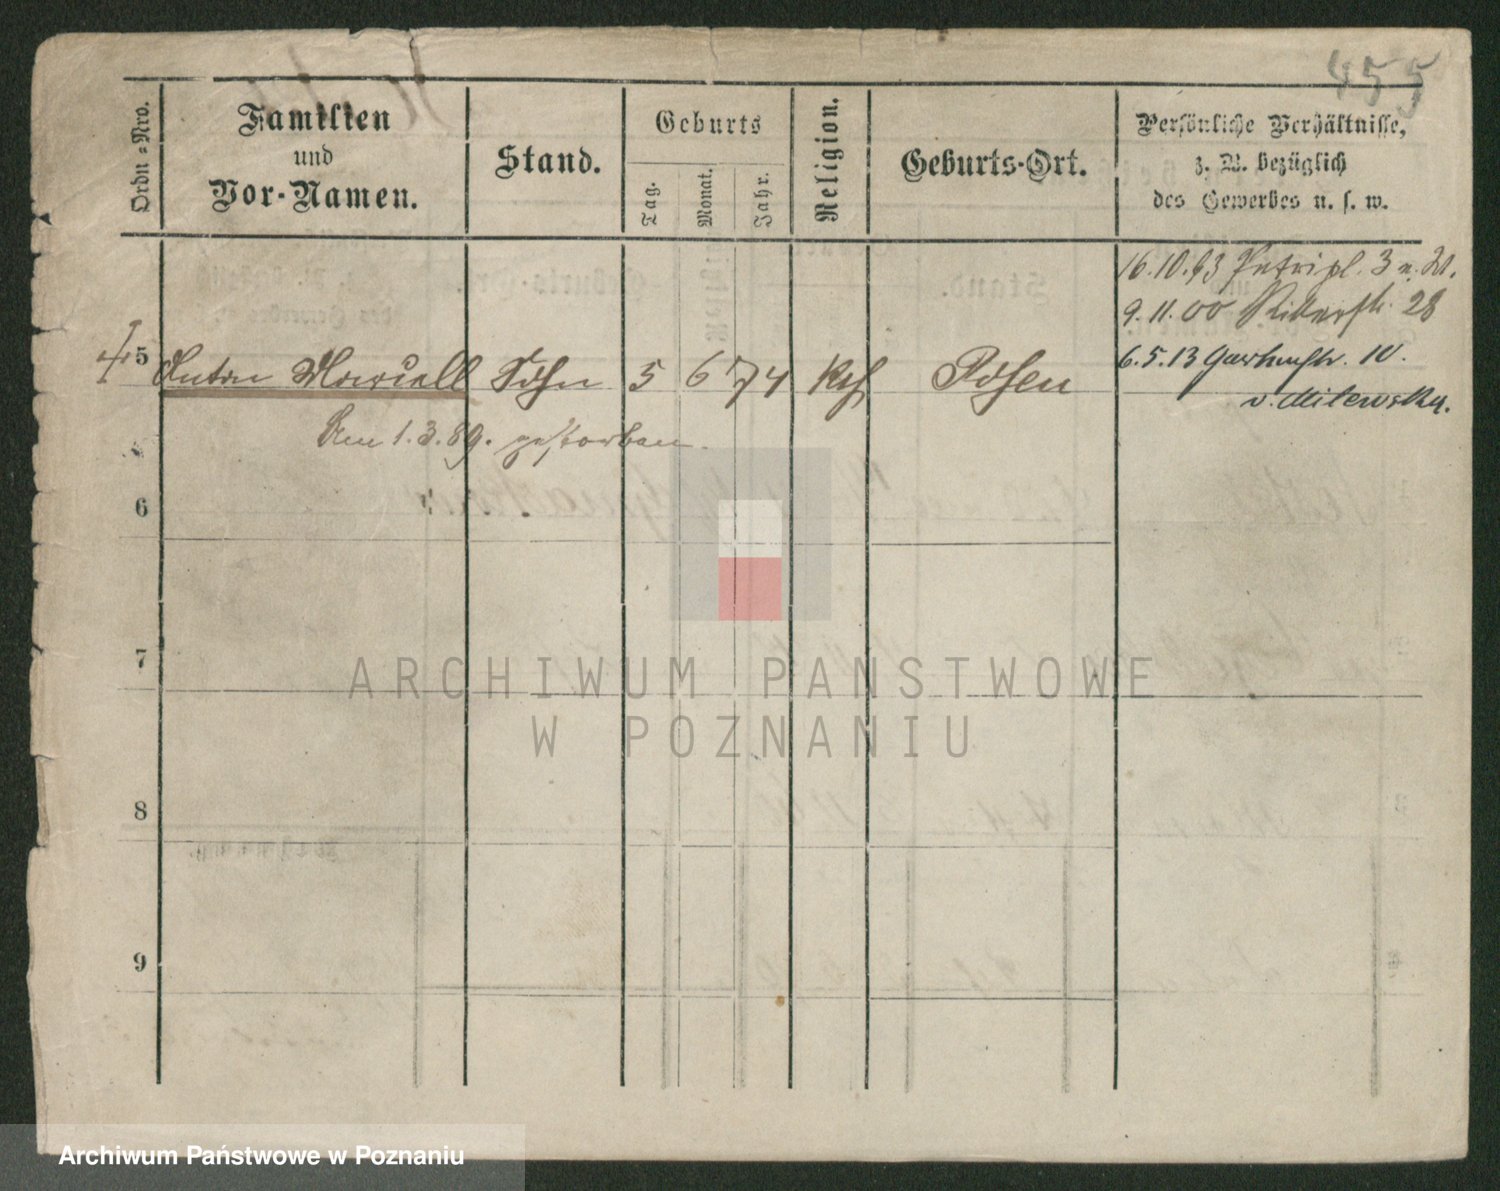 455
Ordn=Nro.
Familien
und
Vor-Namen.
Stand.
Geburts
Tag.
Monat.
Jahr.
Religion.
Geburts-Ort.
Persönliche Verhältnisse,
z. B. bezüglich
des Gewerbes u. s. w.
16.10.93 Petripl. 3 n. W.
9.11.00 Ritterstr. 28
6.5.13 Gartenstr. 10.
v. Milewska.
5 Anton Marcell Sohn 5 6 74 kth Posen
Am 1.3.89. gestorben.
6
7
8
9
ARCHIWUM PANSTWOWE
W POZNANIU
Archiwum Państwowe w Poznaniu